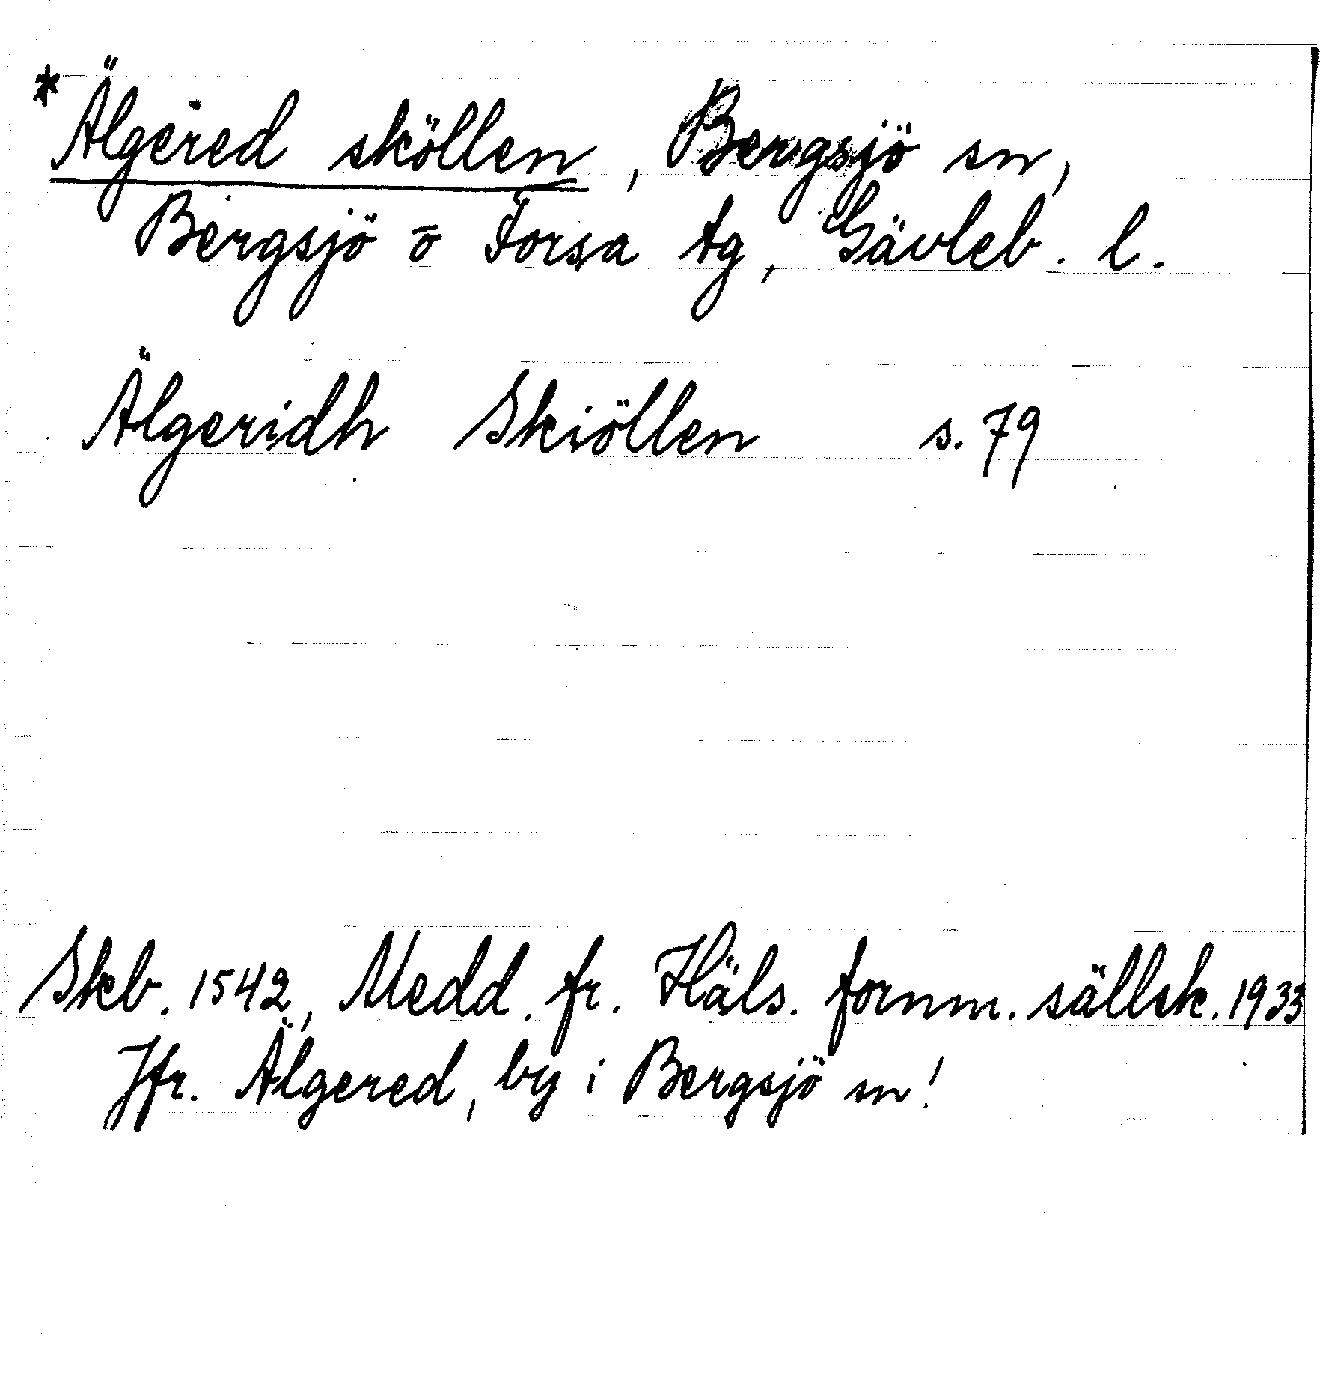 * Älgered sköllen, Bergsjö sn,
Bergsjö o Forsa tg, Gävleb. l.
Älgeridh Skiöllen s. 79
Skb. 1542, Medd. fr. Häls. fornm. sällsk. 1933
Jfr. Älgered, by i Bergsjö sn!